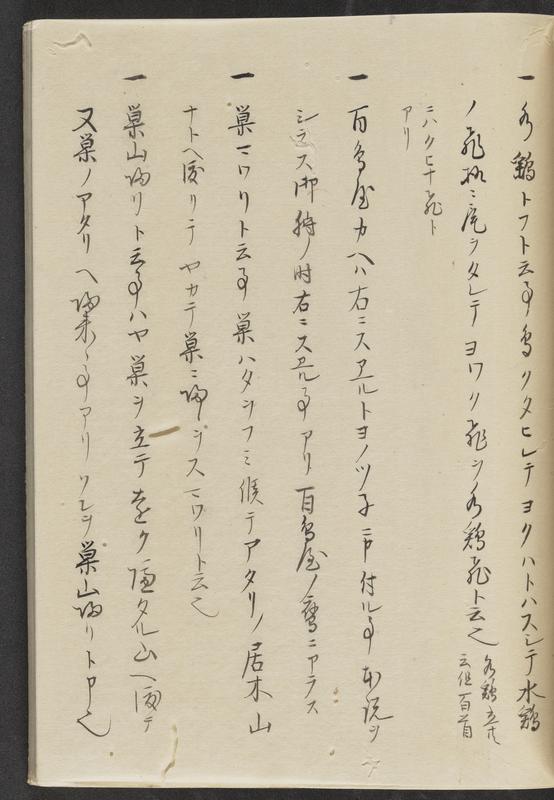 一 水鶏トフト云事鳥クタヒレテヨクハトハスシテ水鶏
ノ飛様ニ尾ヲタレテヨワク飛ヲ水鶏飛ト云也 水鶏立共云但百首
ニハクヒナ飛ト
アリ
一 百鳥屋カヘハ右ニスヱルトヨノツ子ニ申付ル事本説ヲ
シラス御狩ノ時右ニスヱル事アリ百鳥屋ノ鷹ニアラス
一 巣マワリト云事巣ハタヲフミ候テアタリノ居木山
ナトヘ渡リテヤカテ巣ニ帰ヲスマワリト云也
一 巣山帰リト云事ハヤ巣ヲ立テ遠ク隔タル山ヘ渡テ
又巣ノアタリヘ帰来ル事アリソレヲ巣山帰リト申也